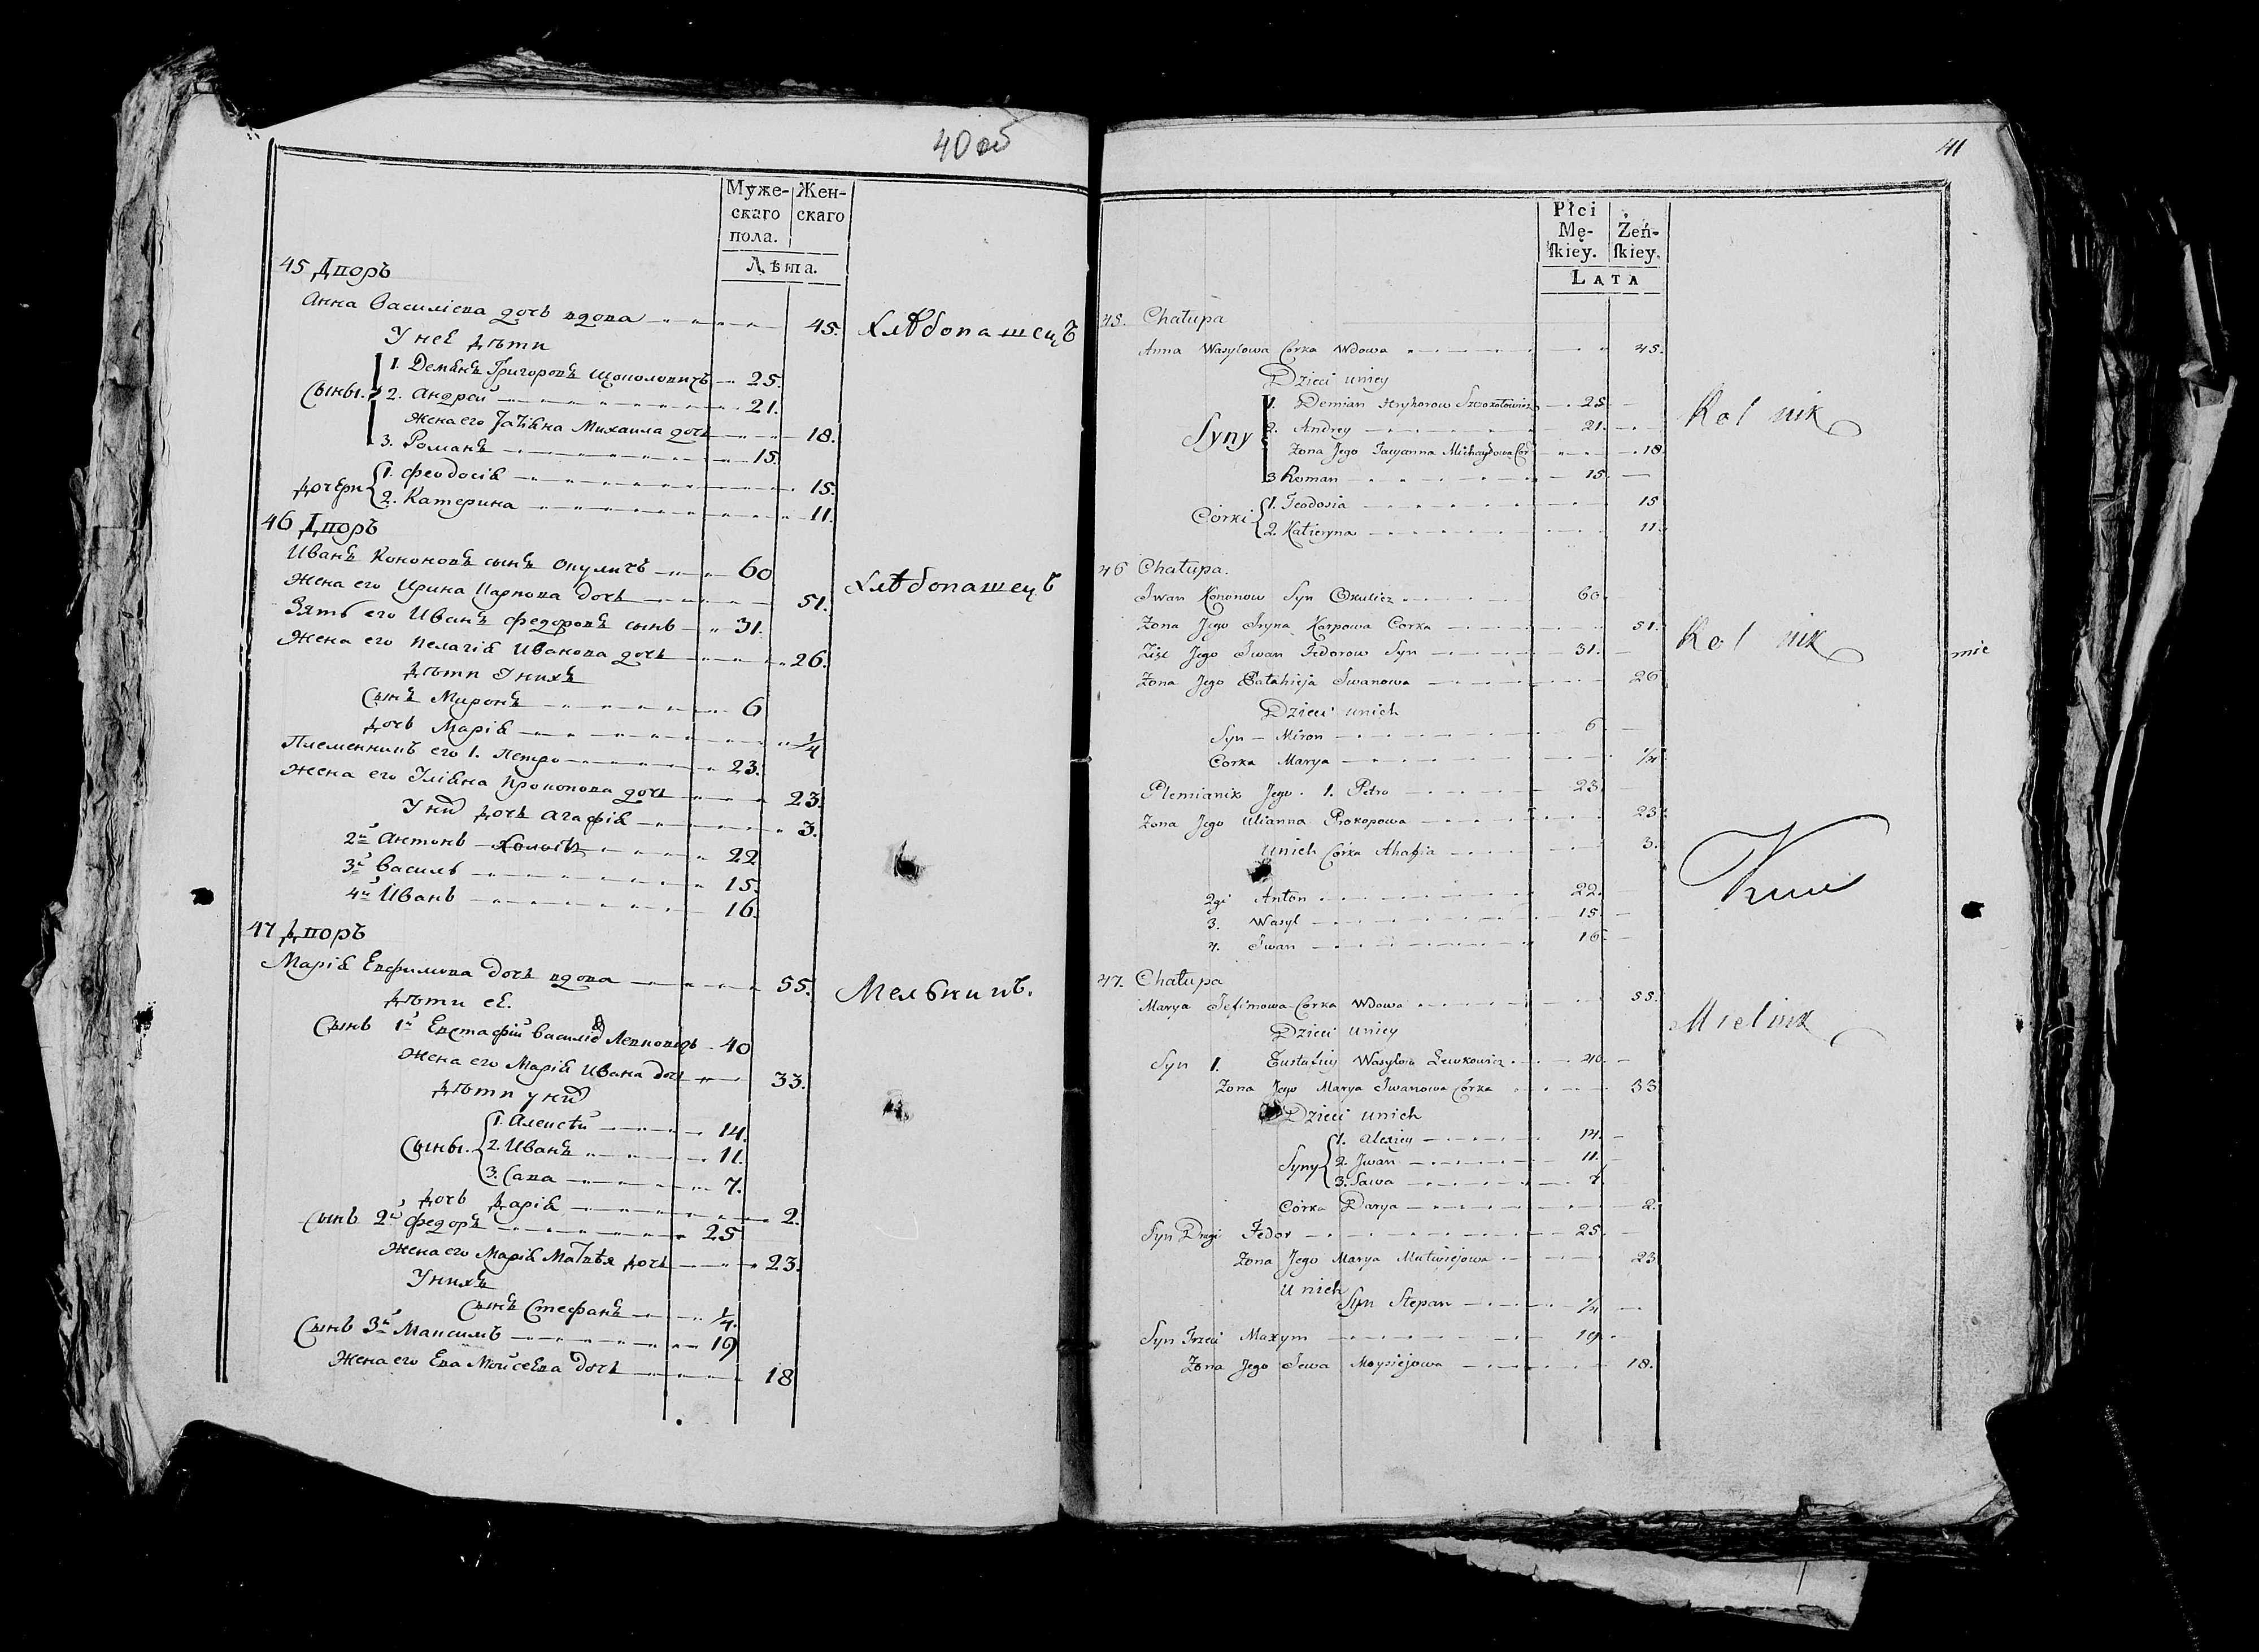 40 об
Муже- Жен-
скаго скаго
пола.
Лѣта.
45 Дворъ
Анна Василіева дочь вдова 45. Хлѣбопашецъ
У неё дѣти
Сыны. 1. Демянъ Григоровъ 25.
2. Андрей 21.
Жена его Татіяна Михаила дочь 18.
3. Романъ 15.
Дочери 1. Феодосія 15.
2. Катерина 11.
46 Дворъ
Иванъ Кононовъ сынъ Окуличъ 60 Хлѣбопашецъ
Жена его Ирина Карпова дочь 51.
Зять его Иванъ Федоровъ сынъ 31.
Жена его Пелагія Иванова дочь 26.
Дѣти У нихъ
Сынъ Миронъ 6
Дочь Марія 1/4
Племенникъ его 1. Петро 23.
Жена его Уліяна Прокопова дочь 23.
У них дочь Агафія 3.
2й Антонъ 22
3й Василь 15.
4й Иванъ 16.
47 Дворъ
Марія Евфимова дочь вдова 55. Мельникъ.
Дѣти её.
Сынъ 1й Евстафій Василіев Левковичъ 40
Жена его Марія Ивана дочь 33.
Дѣти у них
Сыны. 1. Алексѣй 14.
2. Иванъ 11.
3. Сава 7.
Дочь Дарія 2.
Сынъ 2й Федоръ 25
Жена его Марія Матвѣя дочь 23.
У нихъ
Сынъ Стефанъ 1/4.
Сынъ 3й Максимъ 19
Жена его Ева Мойсеева дочь 18
41
Płci
Mę- Żeń-
ſkiey. ſkiey.
LATA
45. Chałupa
Anna Wasylowa Corka Wdowa 45.
Dzieci uniey
Syny 1. Demian Hryhorow Szczokotowicz 25 Rolnik
2. Andrey 21.
Zona Jego Tacyanna Michayłowa Cor 18
3 Roman 15.
Córki 1. Teodosia 15
2. Katieryna 11.
46 Chałupa.
Jwan Kononow Syn Okulicz 60.
Zona Jego Jryna Karpowa Corka 51. Rolnik
Zięć Jego Jwan Fedorow Syn 31.
Zona Jego Pałahieja Jwanowa 26
Dzieci unich
Syn Miron 6
Corka Marya 1/4
Plemianik Jego. 1. Petro 23.
Zona Jego Ulianna Prokopowa 23.
Unich Córka Ahafia 3.
2gi Anton 22.
3. Wasyl 15.
4. Jwan 16.
47. Chałupa
Marya Jefimowa Corka Wdowa 55.
Dzieci Uniey Mielnik
Syn 1. Eustafiey Wasylow Lewkowicz 40.
Zona Jego Marya Jwanowa Córka 33
Dzieci unich
Syny 1. Alexiey 14.
2. Jwan 11.
3. Sawa 7
Córka Darya 2.
Syn Drugi Fedor 25.
Zona Jego Marya Matwiejowa 23
U nich
Syn Stepan 1/4
Syn Trzeci Maxym 19.
Zona Jego Jewa Moysiejowa 18.